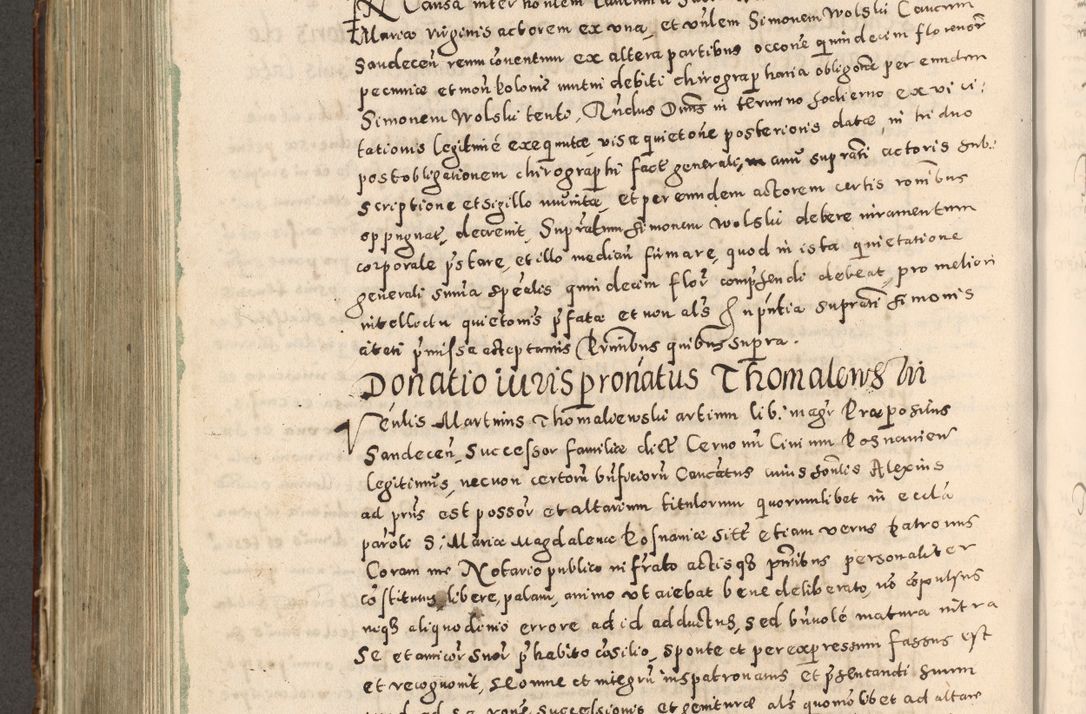 Mariæ virginis actorem ex vna, et vnlem Simonem Wolski
Sandecen reum conuentum ex altera partibus occone quindecim florenor
pecuniæ et mon Polonie mutui debiti chirographaria obligone per eundem
Simonem Wolski tento, Rndus Dnus in termino hodierno ex vi ci:
tationis legitimè exequutæ, visa quietone posterioris datæ, in triduo
post obligationem chirographi fact generali, manu suprati actoris sub:
scriptione et sigillo munita, et per eundem actorem certis ronibus
oppugnat, decreuit, Supratum Simonem Wolski debere iuramentum
corporale pstare, et illo median firmare, quod in ista quietatione
generali summa spealis quindecim flor comphendi debeat, pro meliori
intellectu quietonis pfatæ et non als In pntia suprati Simonis
citati pmissa acceptantis Pntibus quibus supra.
Donatio iuris pronatus Thomalewski
Venlis Martinus Thomalewski artium lib: magr Præpositus
Sandecen, Successor familiæ dict Cerno nu Ciuium Posnanien
legitimus, necnon certoru bnficioru Cancatus cuius honlis Alexius
ad pns est possor et altarium titulorum quorumlibet in eccla
paroli S: Mariæ Magdalenæ Posnaniæ Sitt etiam verus patronus
Coram me Notario publico infrato actisq3 pntibus personaliter
costitutus, libere, palam, animo vt aiebat bene deliberato, no copulsus
neq3 aliquo dmio errore ad id adductus, sed bnuolé matura intra
Se et amicor suor p habito cosilio, sponte et per expressum fassus est
et recognouit, Se omne et integru ius patronatus et phsentandi suum